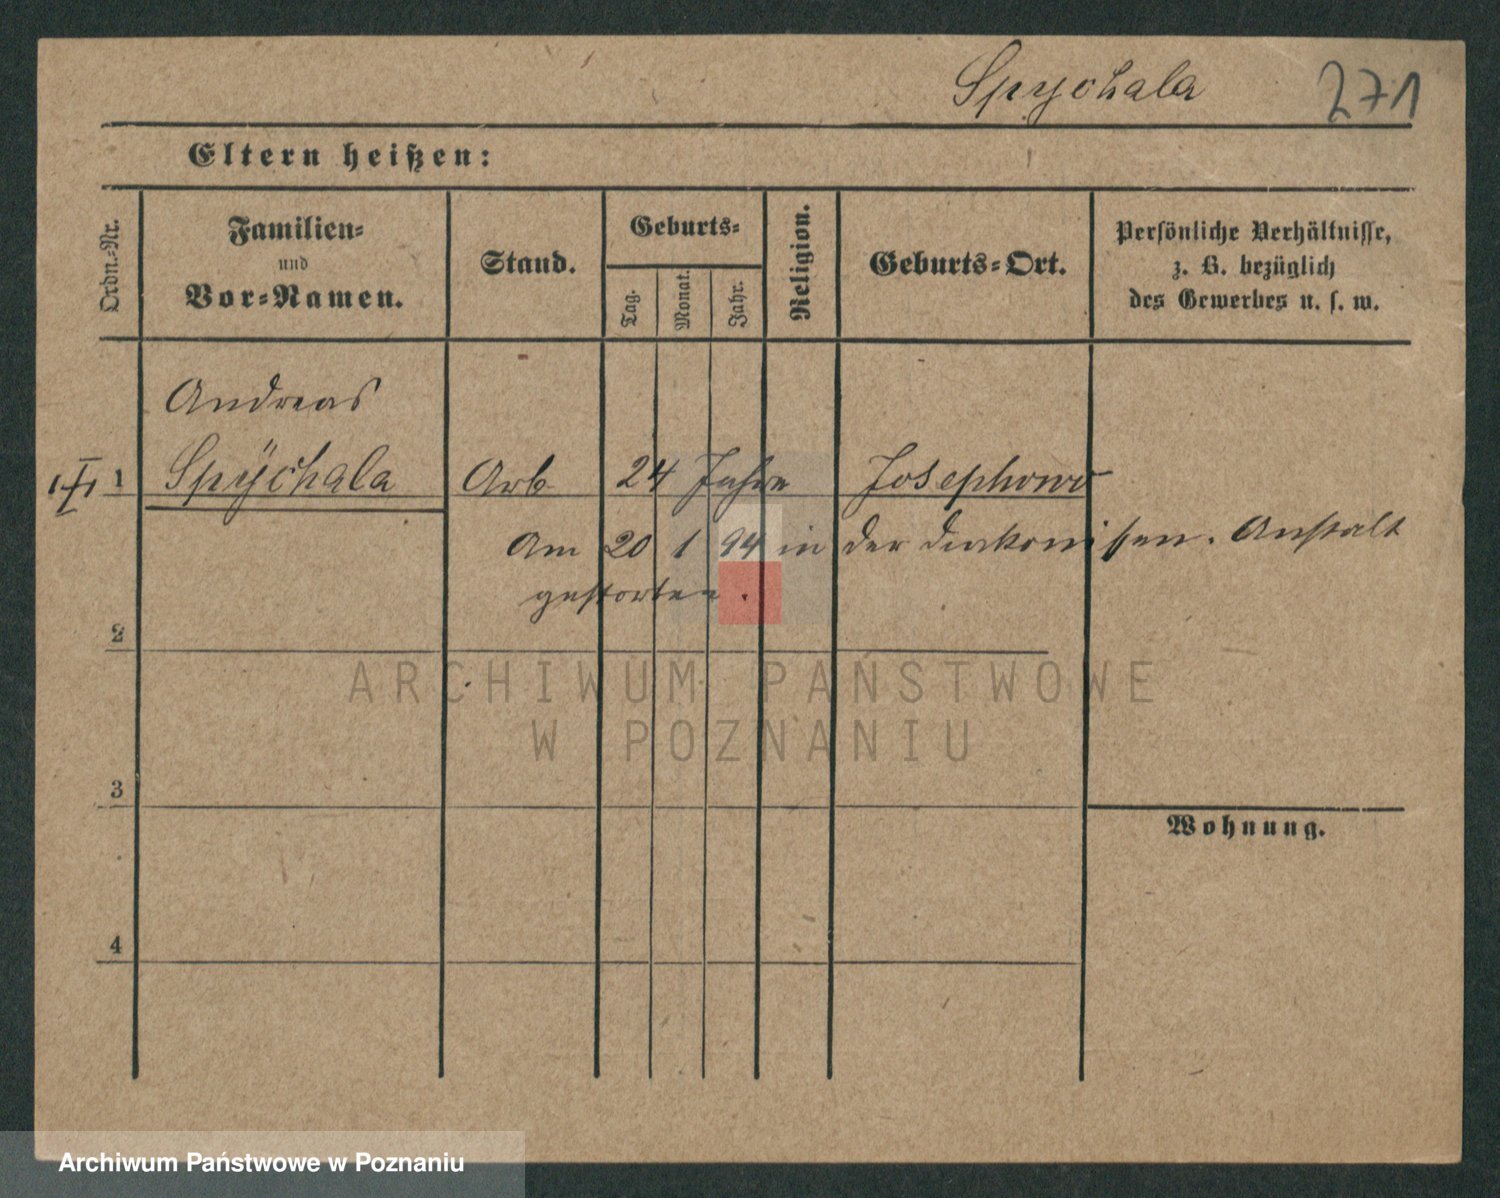 Spychala 271
Eltern heißen:
Ordn.-Nr.
Familien-
und
Vor-Namen.
Stand.
Geburts-
Tag.
Monat.
Jahr.
Religion.
Geburts-Ort.
Persönliche Verhältnisse,
z. B. bezüglich
des Gewerbes u. s. w.
Andreas
1 Spÿchala Arb 24 Jahre Josephowo
Am 20 1 94 in der Diakonissen. Anstalt
gestorben.
2
ARCHIWUM PAŃSTWOWE
W POZNANIU
3
Wohnung.
4
Archiwum Państwowe w Poznaniu